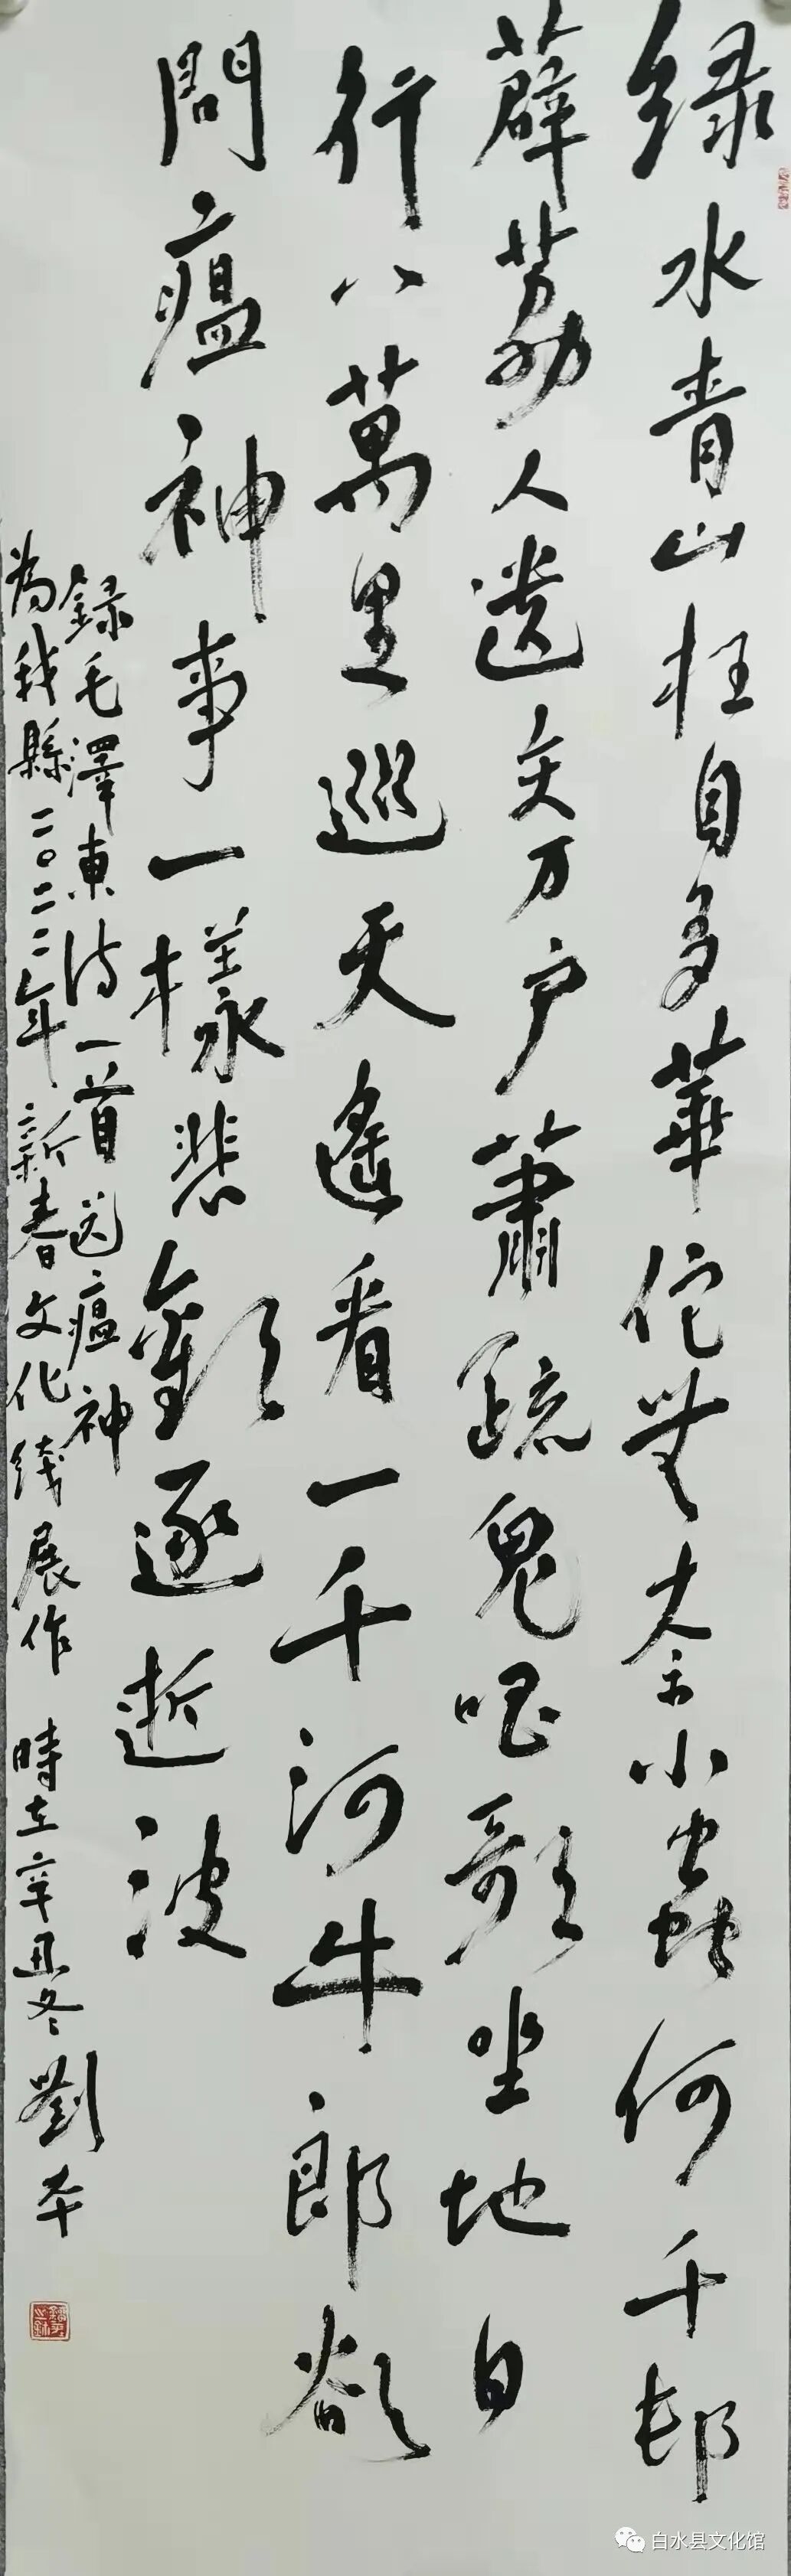 绿水青山枉自多華佗無奈小蟲何千邨
薜荔人遗矢万户蕭疏鬼唱歌坐地日
行八萬里巡天遥看一千河牛郎欲
問瘟神事一樣悲歡逐逝波
録毛澤東诗一首送瘟神
為我縣二〇二二年新春文化线展作 時在辛丑冬 劉
白水县文化馆